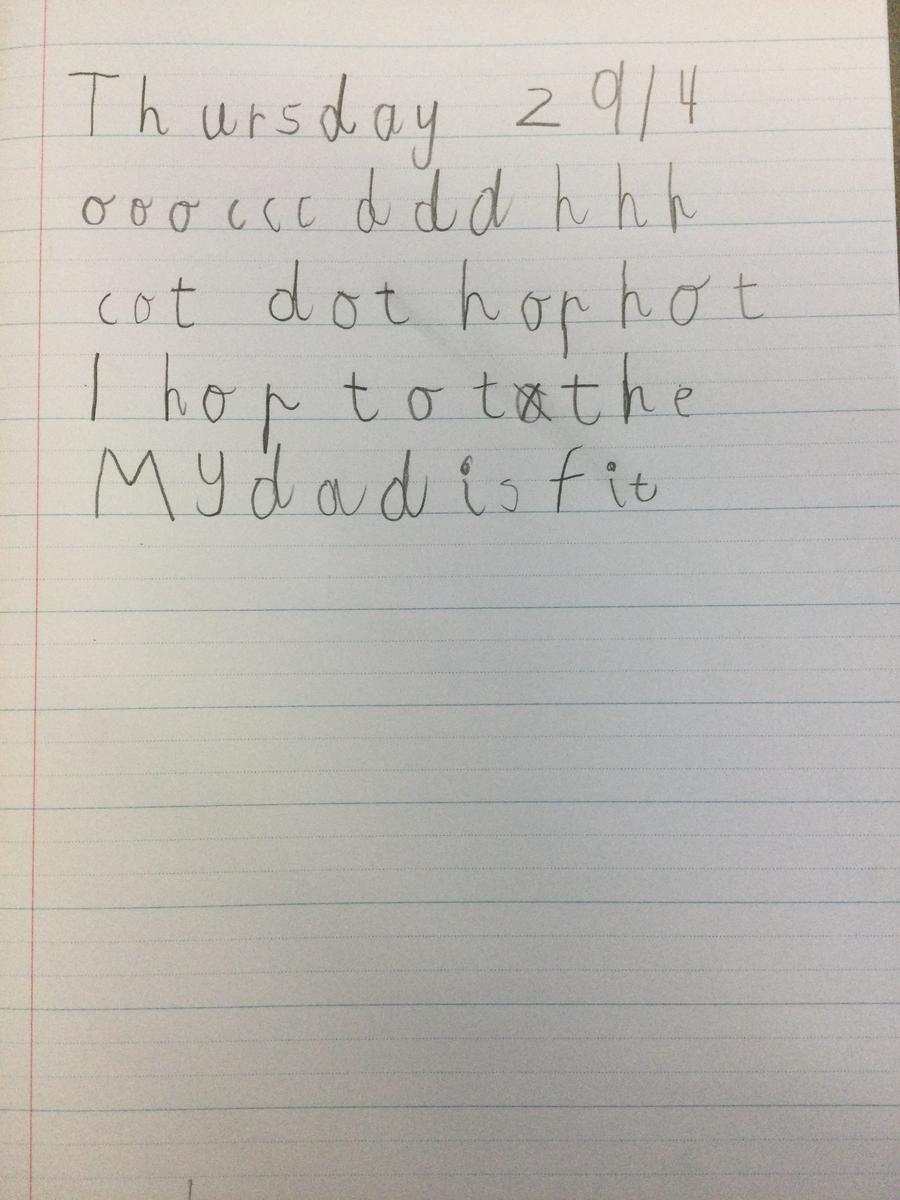 Thursday 29/4
o o o c c c d d d h h h
cot dot hop hot
I hop to the
My dad is fit